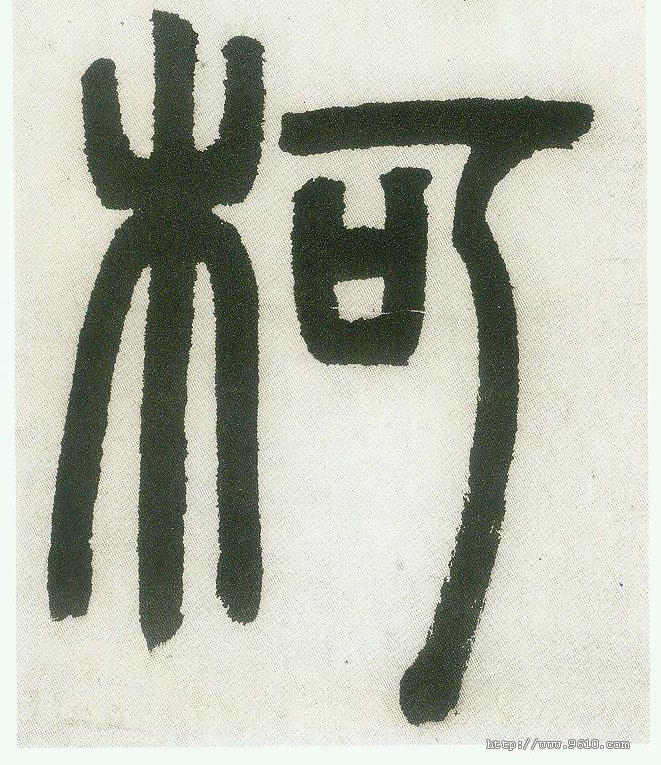 柯
http://www.9610.com